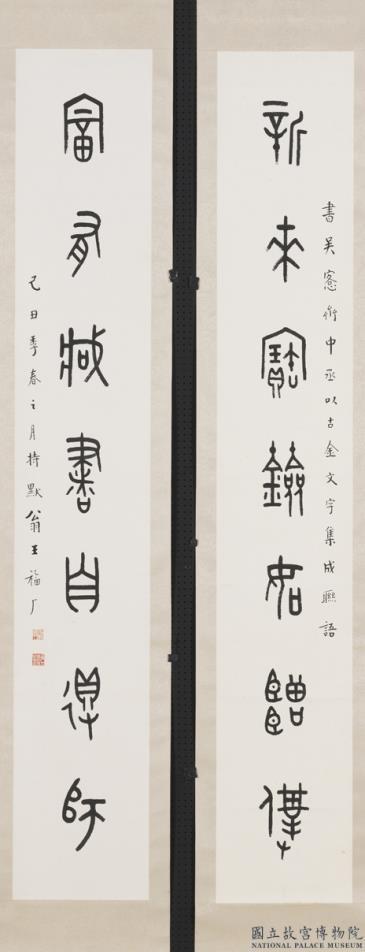 書吳愙齋中丞以古金文字集成聯語
新來寶鐱如僕
富有臧書自得師
己丑季春之月持默翁王福厂
國立故宮博物院
NATIONAL PALACE MUSEUM